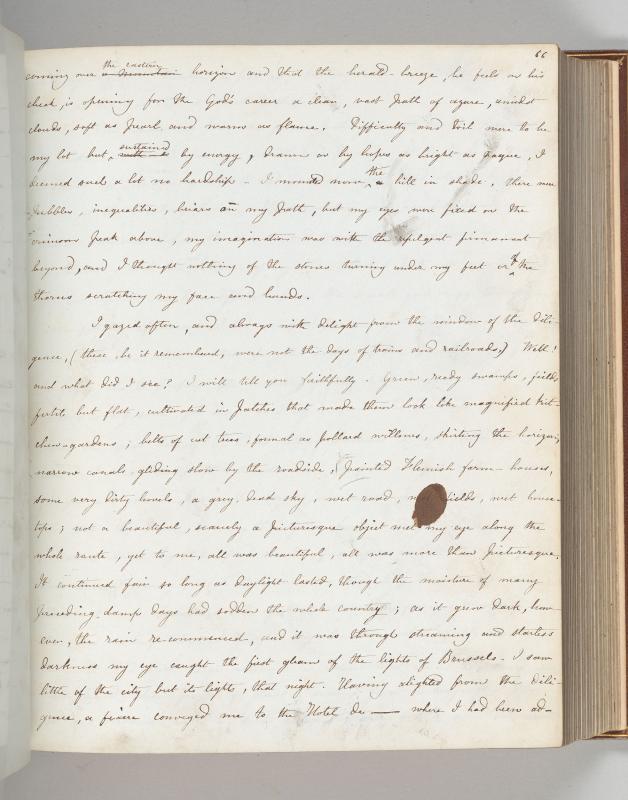 66
coming over a mountain the eastern horizon and that the herald-breeze, he feels on his
cheek, is opening for the God's career a clear, vast path of azure, amidst
clouds, soft as pearl and warm as flame. Difficulty and toil were to be
my lot but, sustained by energy, drawn on by hopes as bright as vague, I
deemed such a lot no hardship. I mounted now the hill in shade, there were
pebbles, inequalities, briars in my path, but my eyes were fixed on the
crimson peak above, my imagination was with the refulgent firmament
beyond, and I thought nothing of the stones turning under my feet or of the
thorns scratching my face and hands.
I gazed often, and always with delight from the window of the dili-
gence, (these, be it remembered, were not the days of trains and railroads.) Well!
and what did I see? I will tell you faithfully. Green, reedy swamps, fields,
fertile but flat, cultivated in patches that made them look like magnified kit-
chen-gardens; belts of cut trees, formal as pollard willows, skirting the horizon,
narrow canals gliding slow by the roadside, painted Flemish farm-houses,
some very dirty hovels, a grey, dead sky, wet road, wet fields, wet house-
tops; not a beautiful, scarcely a picturesque object met my eye along the
whole route, yet to me, all was beautiful, all was more than picturesque.
It continued fair so long as daylight lasted, though the moisture of many
preceding damp days had sodden the whole country; as it grew dark, how-
ever, the rain re-commenced, and it was through streaming and starless
darkness my eye caught the first gleam of the lights of Brussels. I saw
little of the city but its lights, that night. Having alighted from the dili-
gence, a fiacre conveyed me to the Hotel de —— where I had been ad-